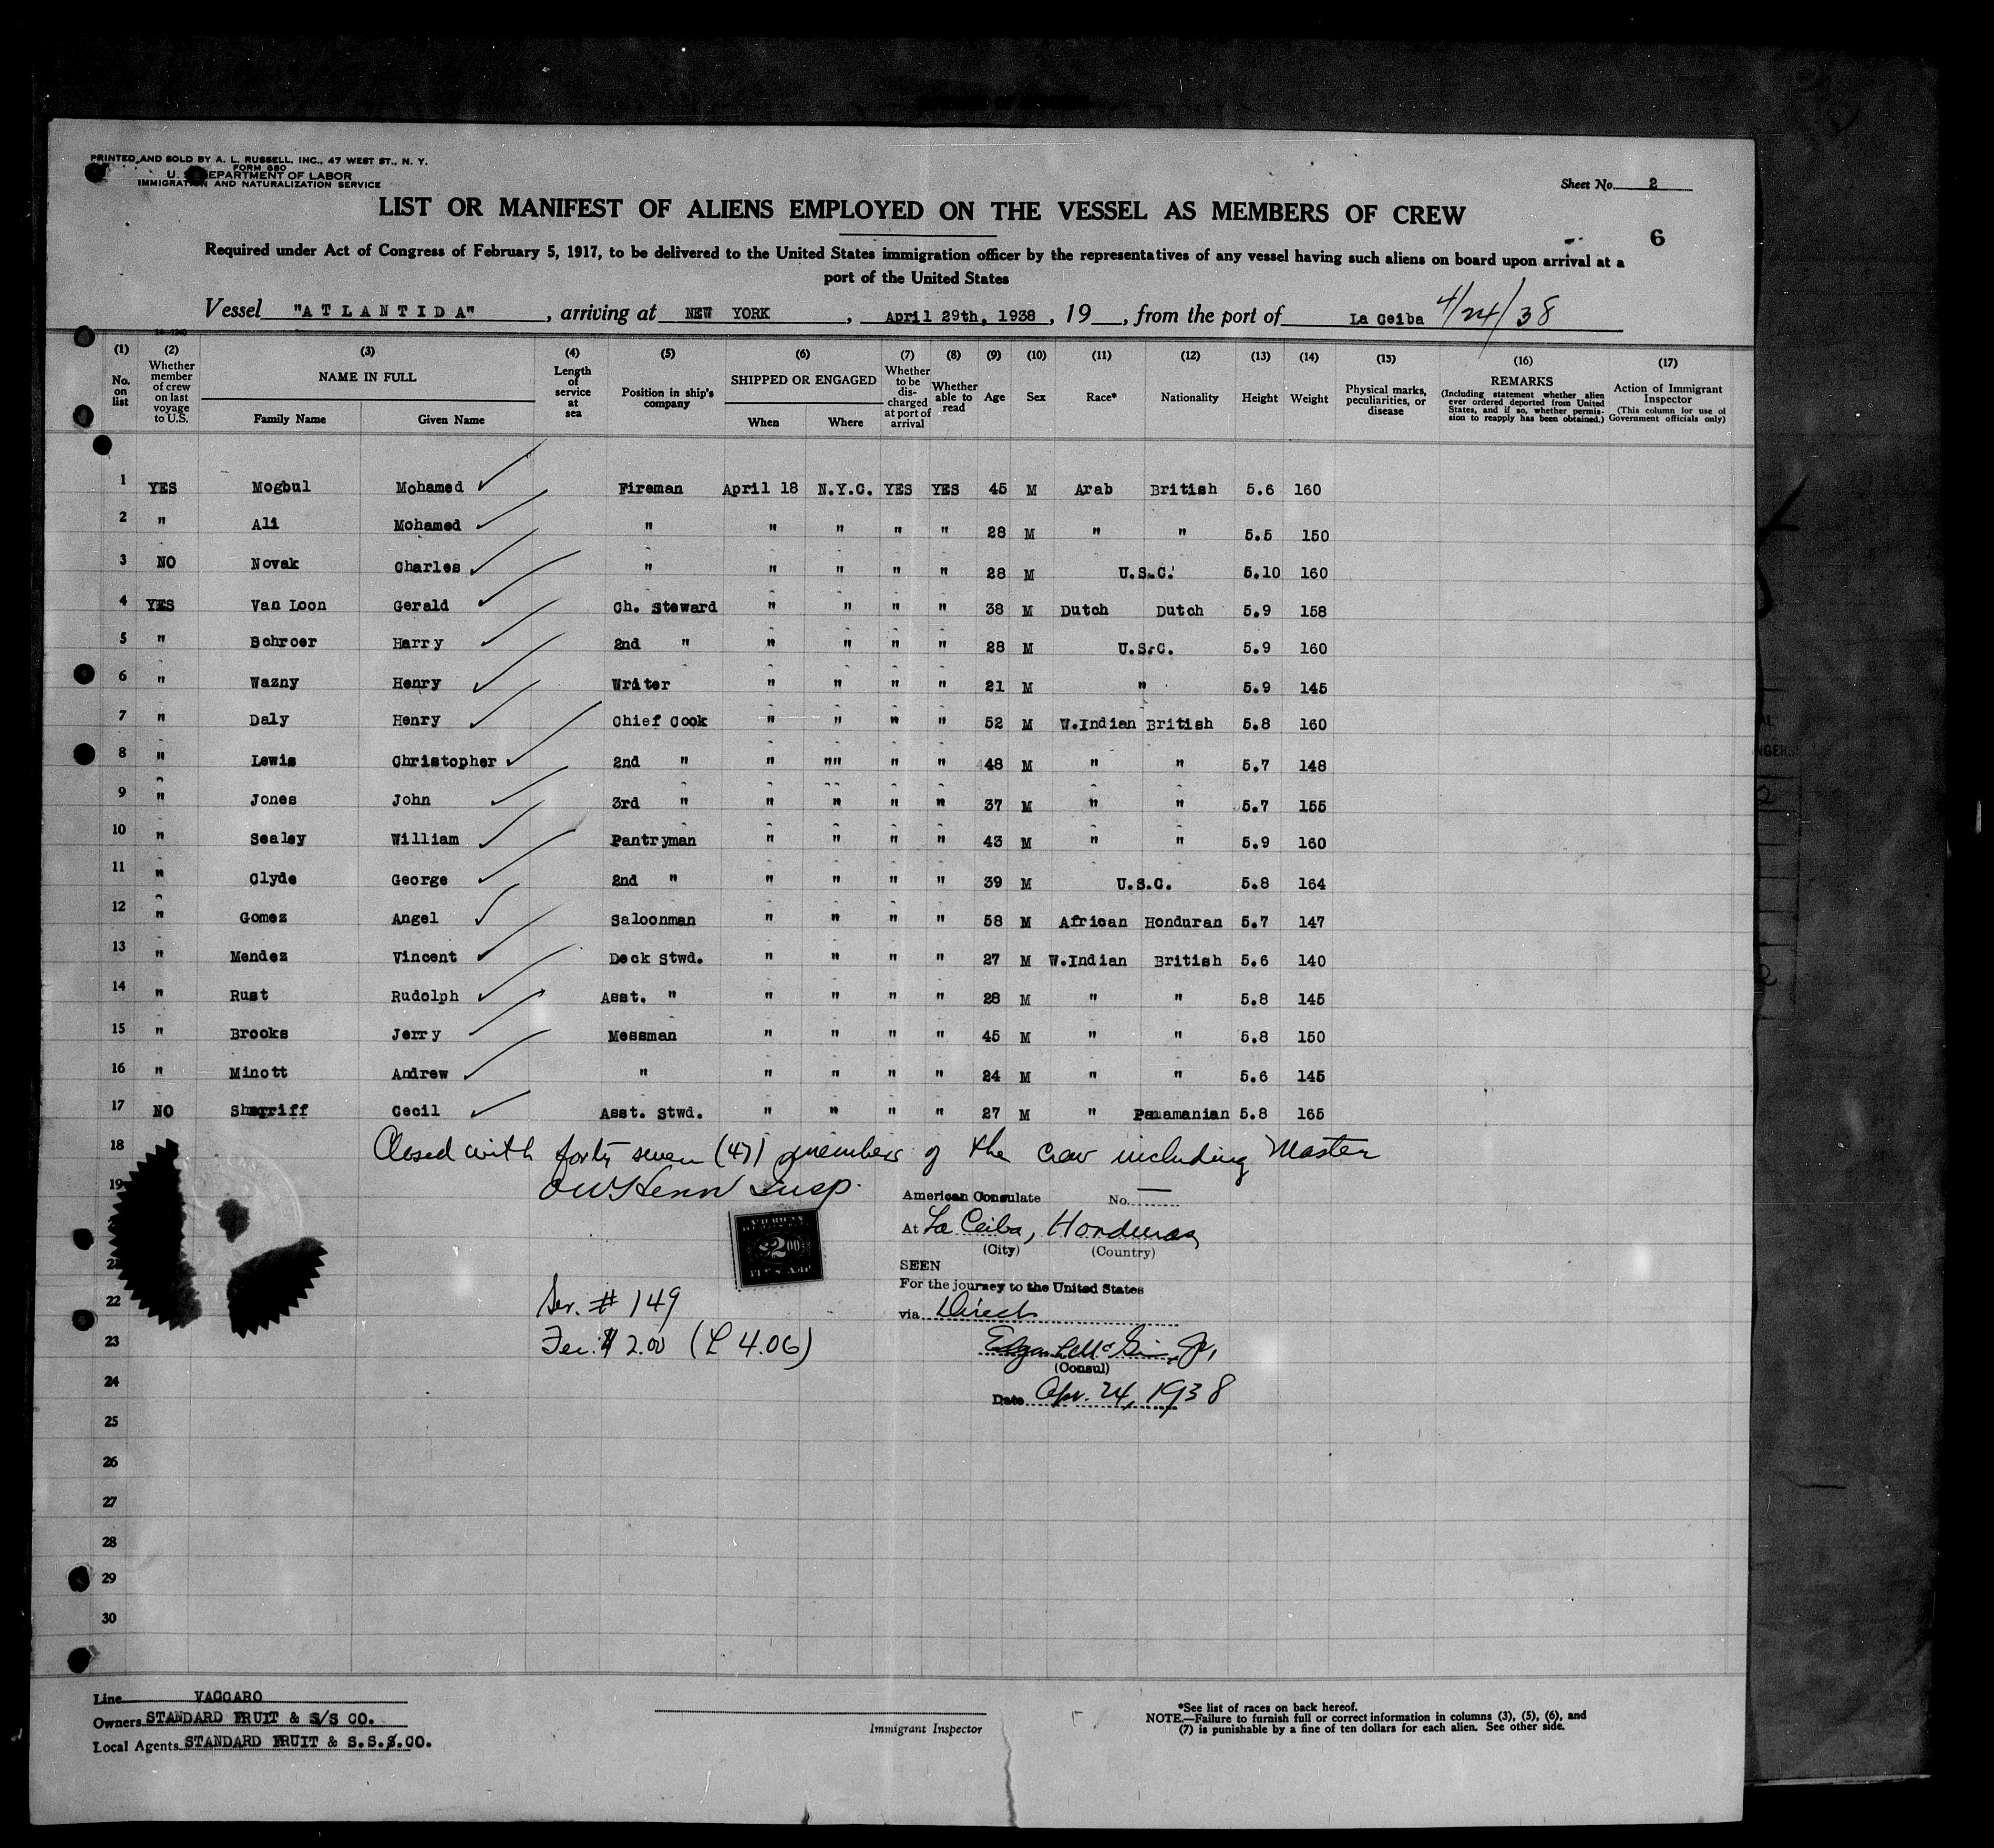 PRINTED AND SOLD BY A. L. RUSSELL, INC., 47 WEST ST., N. Y.
FORM 680
U. S. DEPARTMENT OF LABOR
IMMIGRATION AND NATURALIZATION SERVICE
Sheet No. 2
LIST OR MANIFEST OF ALIENS EMPLOYED ON THE VESSEL AS MEMBERS OF CREW
6
Required under Act of Congress of February 5, 1917, to be delivered to the United States immigration officer by the representatives of any vessel having such aliens on board upon arrival at a
port of the United States
Vessel "ATLANTIDA", arriving at NEW YORK, April 29th, 1938, 19 , from the port of La Ceiba 4/24/38
(1) No. on list
(2) Whether member of crew on last voyage to U.S.
(3) NAME IN FULL
Family Name Given Name
(4) Length of service at sea
(5) Position in ship's company
(6) SHIPPED OR ENGAGED
When Where
(7) Whether to be discharged at port of arrival
(8) Whether able to read
(9) Age
(10) Sex
(11) Race*
(12) Nationality
(13) Height
(14) Weight
(15) Physical marks, peculiarities, or disease
(16) REMARKS (Including statement whether alien ever ordered deported from United States, and if so, whether permission to reapply has been obtained.)
(17) Action of Immigrant Inspector (This column for use of Government officials only)
1 YES Mogbul Mohamed Fireman April 18 N.Y.C. YES YES 45 M Arab British 5.6 160
2 " Ali Mohamed " " " " " 28 M " " 5.5 150
3 NO Novak Charles " " " " " 28 M U.S.C. 5.10 160
4 YES Van Loon Gerald Ch. Steward " " " " 38 M Dutch Dutch 5.9 158
5 " Schroer Harry 2nd " " " " " 28 M U.S.C. 5.9 160
6 " Wazny Henry Writer " " " " 21 M " 5.9 145
7 " Daly Henry Chief Cook " " " " 52 M W.Indian British 5.8 160
8 " Lewis Christopher 2nd " " "" " " 48 M " " 5.7 148
9 " Jones John 3rd " " " " " 37 M " " 5.7 155
10 " Sealey William Pantryman " " " " 43 M " " 5.9 160
11 " Clyde George 2nd " " " " " 39 M U.S.C. 5.8 164
12 " Gomez Angel Saloonman " " " " 58 M African Honduran 5.7 147
13 " Mendez Vincent Deck Stwd. " " " " 27 M W.Indian British 5.6 140
14 " Rust Rudolph Asst. " " " " " 28 M " " 5.8 145
15 " Brooks Jerry Messman " " " " 45 M " " 5.8 150
16 " Minott Andrew " " " " " 24 M " " 5.6 145
17 NO Sherriff Cecil Asst. Stwd. " " " " 27 M " Panamanian 5.8 165
18 Closed with forty seven (47) members of the crew including Master
19
Insp.
American Consulate No.
At La Ceiba, Honduras
(City) (Country)
SEEN
For the journey to the United States
via Direct
(Consul)
Date Apr. 24, 1938
AMERICAN
$2.00
Ser. # 149
Fee: $ 2.00 (L 4.06)
22
23
24
25
26
27
28
29
30
Line VACCARO
Owners STANDARD FRUIT & S/S CO.
Local Agents STANDARD FRUIT & S.S.S.CO.
Immigrant Inspector
*See list of races on back hereof.
NOTE.—Failure to furnish full or correct information in columns (3), (5), (6), and
(7) is punishable by a fine of ten dollars for each alien. See other side.